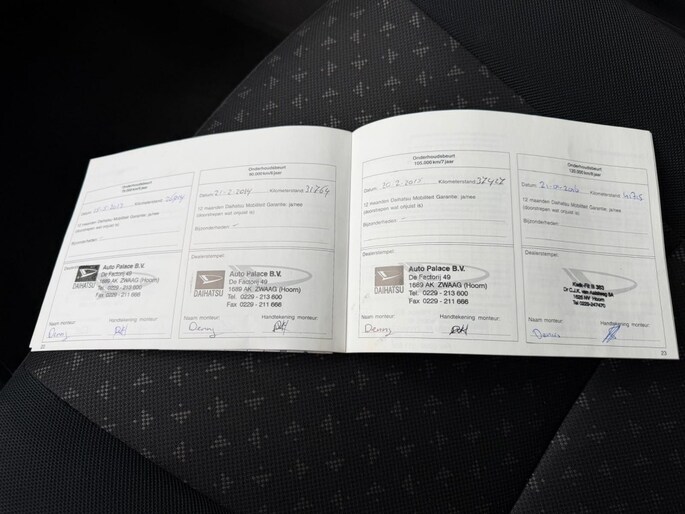 Onderhoudsbeurt
Datum:
Kilometerstand:
12 maanden Daihatsu Mobiliteit Garantie: ja/nee
(doorstrepen wat onjuist is)
Bijzonderheden:
Dealerstempel:
DAIHATSU
Auto Palace B.V.
De Factorij 49
1689 AK ZWAAG (Hoorn)
Tel. 0229 - 213 600
Fax 0229 - 211 666
Naam monteur:
Handtekening monteur:
Denny
Onderhoudsbeurt
Datum: 21-2-2014 Kilometerstand: 31764
12 maanden Daihatsu Mobiliteit Garantie: ja/nee
(doorstrepen wat onjuist is)
Bijzonderheden: -
Dealerstempel:
DAIHATSU
Auto Palace B.V.
De Factorij 49
1689 AK ZWAAG (Hoorn)
Tel. 0229 - 213 600
Fax 0229 - 211 666
Naam monteur:
Handtekening monteur:
Denny
Onderhoudsbeurt
105.000 km/7 jaar
Datum: Kilometerstand: 37417
12 maanden Daihatsu Mobiliteit Garantie: ja/nee
(doorstrepen wat onjuist is)
Bijzonderheden: -
Dealerstempel:
DAIHATSU
Auto Palace B.V.
De Factorij 49
1689 AK ZWAAG (Hoorn)
Tel. 0229 - 213 600
Fax 0229 - 211 666
Naam monteur:
Handtekening monteur:
Denny
Onderhoudsbeurt
120.000 km/8 jaar
Datum: Kilometerstand:
12 maanden Daihatsu Mobiliteit Garantie: ja/nee
(doorstrepen wat onjuist is)
Bijzonderheden:
Dealerstempel:
Kwik-Fit B. 383
Dr C.J.K. van Aalstweg 5A
1625 NV Hoorn
Tel 0229-247470
Naam monteur:
Handtekening monteur:
23